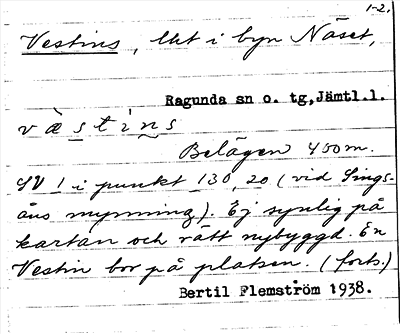 1-2.
Vestins, lht i byn Näset,
Ragunda sn o. tg,Jämtl.l.
væ̀stìns
Belägen 450 m.
SV 1 i punkt 130, 20 (vid Sings-
åns mynning). Ej synlig på
kartan och rätt nybyggd. En
Vestin bor på platsen. (forts.)
Bertil Flemström 1938.